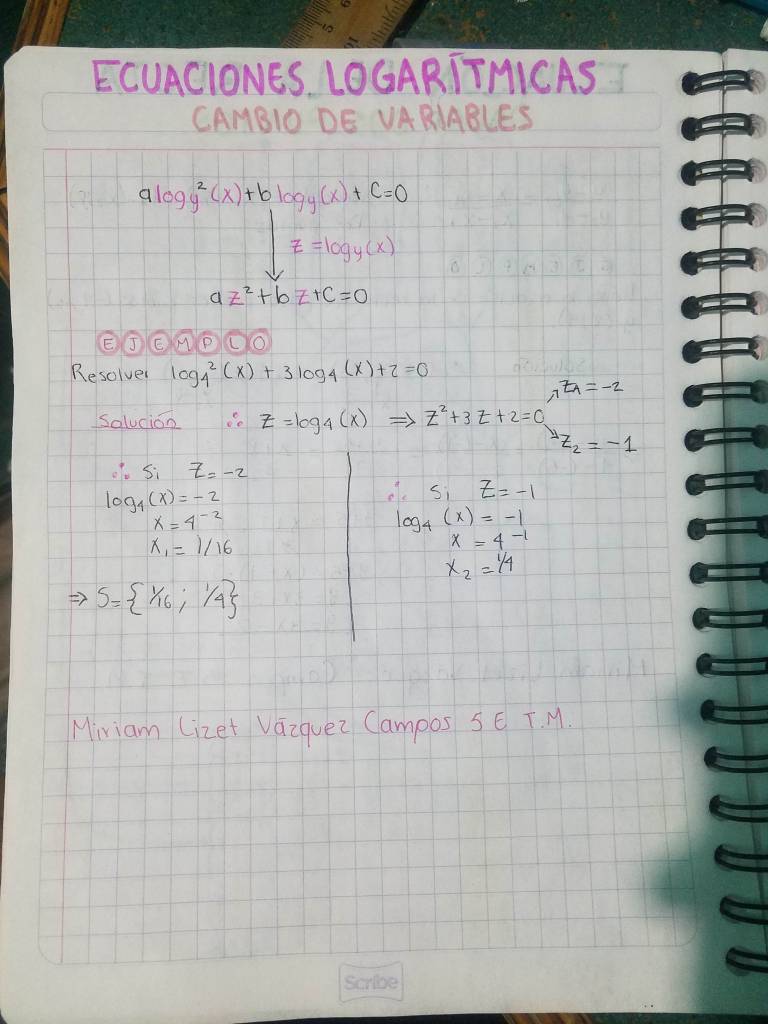 ECUACIONES LOGARÍTMICAS
CAMBIO DE VARIABLES
alogy²(x)+b logy(x)+C=0
z=logy(x)
az²+bz+C=0
EJEMPLO
Resolver log₄²(x)+3log₄(x)+2=0
Solución ∴ Z=log₄(x) ⇒ Z²+3Z+2=0
Z₁=-2
Z₂=-1
∴ Si Z=-2
log₄(x)=-2
x=4⁻²
x₁=1/16
⇒ S={1/16; 1/4}
∴ Si Z=-1
log₄(x)=-1
x=4⁻¹
x₂=1/4
Miriam Lizet Vázquez Campos 5 E T.M.
Scribe